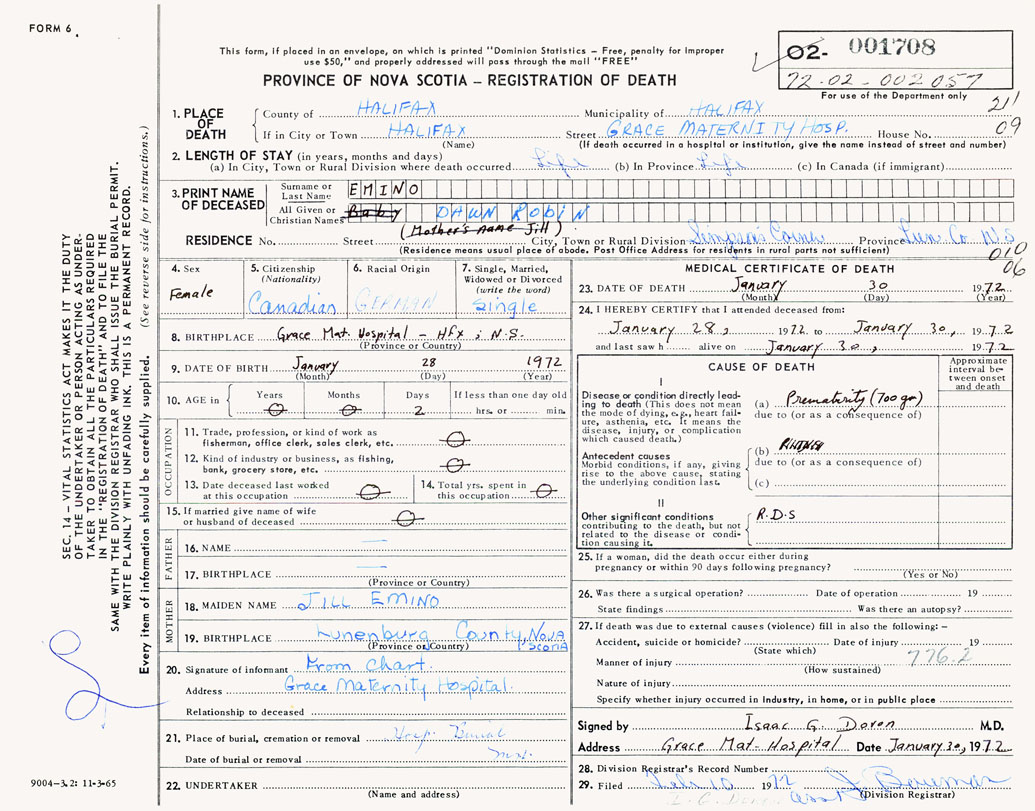 FORM 6.
This form, if placed in an envelope, on which is printed "Dominion Statistics – Free, penalty for improper
use $50," and properly addressed will pass through the mail "FREE"
PROVINCE OF NOVA SCOTIA – REGISTRATION OF DEATH
02- 001708
72-02-002057
For use of the Department only
21
09
SEC. 14 – VITAL STATISTICS ACT MAKES IT THE DUTY
OF THE UNDERTAKER OR PERSON ACTING AS UNDER-
TAKER TO OBTAIN ALL THE PARTICULARS REQUIRED
IN THE "REGISTRATION OF DEATH" AND TO FILE THE
SAME WITH THE DIVISION REGISTRAR WHO SHALL ISSUE THE BURIAL PERMIT.
WRITE PLAINLY WITH UNFADING INK. THIS IS A PERMANENT RECORD.
Every item of information should be carefully supplied. (See reverse side for instructions.)
1. PLACE OF DEATH
County of HALIFAX Municipality of HALIFAX
If in City or Town HALIFAX Street GRACE MATERNITY HOSP. House No.
(Name) (If death occurred in a hospital or institution, give the name instead of street and number)
2. LENGTH OF STAY (in years, months and days)
(a) In City, Town or Rural Division where death occurred Life (b) In Province Life (c) In Canada (if immigrant)
3. PRINT NAME OF DECEASED
Surname or Last Name EMINO
All Given or Christian Names Baby DAWN ROBIN
(Mother's name Jill)
RESIDENCE No. Street City, Town or Rural Division Simpson's Corner Province Lun. Co. N.S
(Residence means usual place of abode. Post Office Address for residents in rural parts not sufficient)
010
06
4. Sex
Female
5. Citizenship
(Nationality)
Canadian
6. Racial Origin
GERMAN
7. Single, Married,
Widowed or Divorced
(write the word)
Single
8. BIRTHPLACE Grace Mat. Hospital – Hfx ; N.S.
(Province or Country)
9. DATE OF BIRTH January 28 1972
(Month) (Day) (Year)
10. AGE in
Years Months Days If less than one day old
0 0 2 hrs. or min.
OCCUPATION
11. Trade, profession, or kind of work as
fisherman, office clerk, sales clerk, etc. 0
12. Kind of industry or business, as fishing,
bank, grocery store, etc. 0
13. Date deceased last worked
at this occupation 0
14. Total yrs. spent in
this occupation 0
15. If married give name of wife
or husband of deceased 0
FATHER
16. NAME —
17. BIRTHPLACE —
(Province or Country)
MOTHER
18. MAIDEN NAME JILL EMINO
19. BIRTHPLACE Lunenburg County, NOVA SCOTIA
(Province or Country)
20. Signature of informant From Chart.
Address Grace Maternity Hospital.
Relationship to deceased
21. Place of burial, cremation or removal Hosp. Burial
Date of burial or removal
22. UNDERTAKER
(Name and address)
MEDICAL CERTIFICATE OF DEATH
23. DATE OF DEATH January 30 1972
(Month) (Day) (Year)
24. I HEREBY CERTIFY that I attended deceased from:
January 28, 1972 to January 30, 1972
and last saw h alive on January 30, 1972
CAUSE OF DEATH
Approximate
interval be-
tween onset
and death
I
Disease or condition directly lead-
ing to death (This does not mean
the mode of dying, e.g., heart fail-
ure, asthenia, etc. It means the
disease, injury, or complication
which caused death.)
(a) Prematurity (700 gm)
due to (or as a consequence of)
Antecedent causes
Morbid conditions, if any, giving
rise to the above cause, stating
the underlying condition last.
(b)
due to (or as a consequence of)
(c)
II
Other significant conditions
contributing to the death, but not
related to the disease or condi-
tion causing it.
R.D.S
25. If a woman, did the death occur either during
pregnancy or within 90 days following pregnancy?
(Yes or No)
26. Was there a surgical operation? Date of operation 19
State findings Was there an autopsy?
27. If death was due to external causes (violence) fill in also the following: –
Accident, suicide or homicide? Date of injury 19
(State which)
776.2
Manner of injury
(How sustained)
Nature of injury
Specify whether injury occurred in Industry, in home, or in public place
Signed by Isaac G. Doren M.D.
Address Grace Mat. Hospital Date January 30, 1972
28. Division Registrar's Record Number
29. Filed Feb 10 1972 J. Bowman
asst (Division Registrar)
9004–3.2: 11-3-65